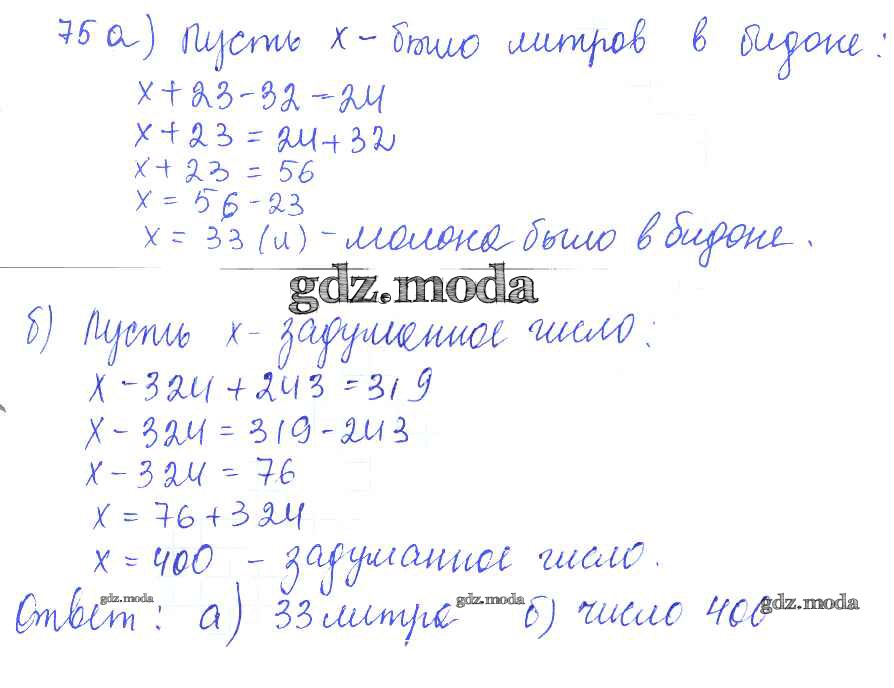 75 а) Пусть х - было литров в бидоне:
х + 23 - 32 = 24
х + 23 = 24 + 32
х + 23 = 56
х = 56 - 23
х = 33 (л) - молока было в бидоне.
gdz.moda
б) Пусть х - задуманное число:
х - 324 + 243 = 319
х - 324 = 319 - 243
х - 324 = 76
х = 76 + 324
х = 400 - задуманное число.
Ответ: а) 33 литра б) число 400
gdz.moda gdz.moda gdz.moda